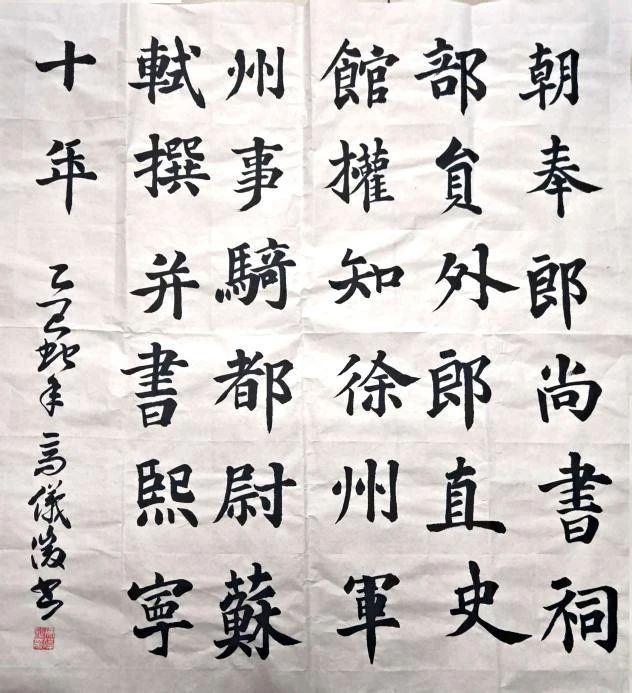 朝奉郎尚書祠
部員外郎直史
館權知徐州軍
州事騎都尉蘇
軾撰并書熙寧
十年
乙巳蛇年高儀濬书